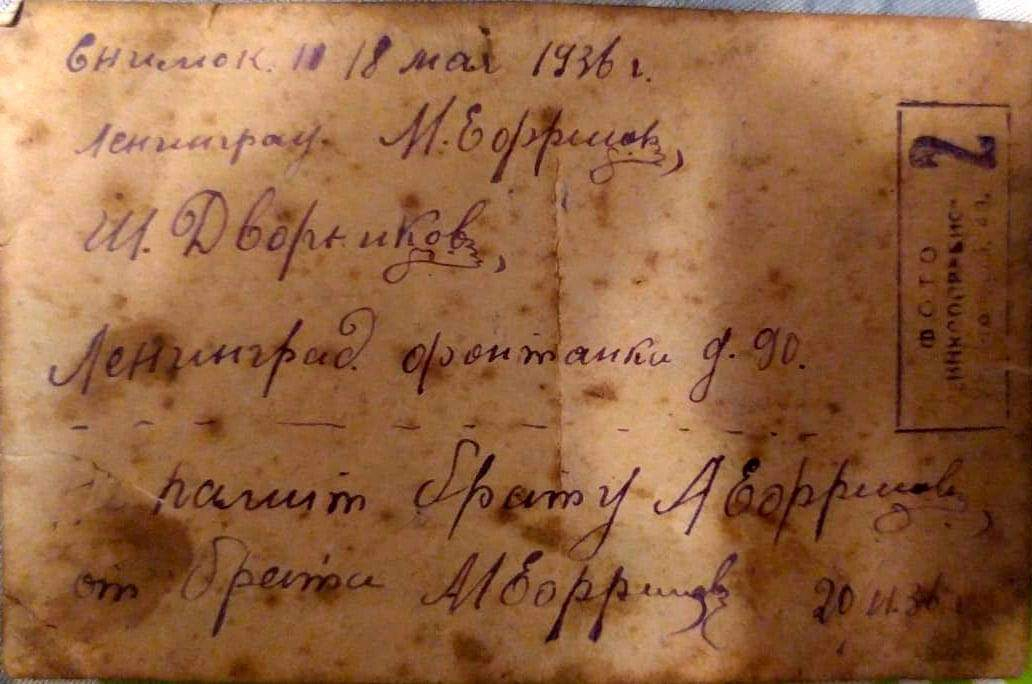 Снимок. 18 мая 1936 г.
Ленинград. М. Еоффинов,
Ш. Дворников,
Ленинград. фонтанка д. 90.
памит брату А Еоффинов,
от брата М Еоффинов 20 36
ФОТО
2